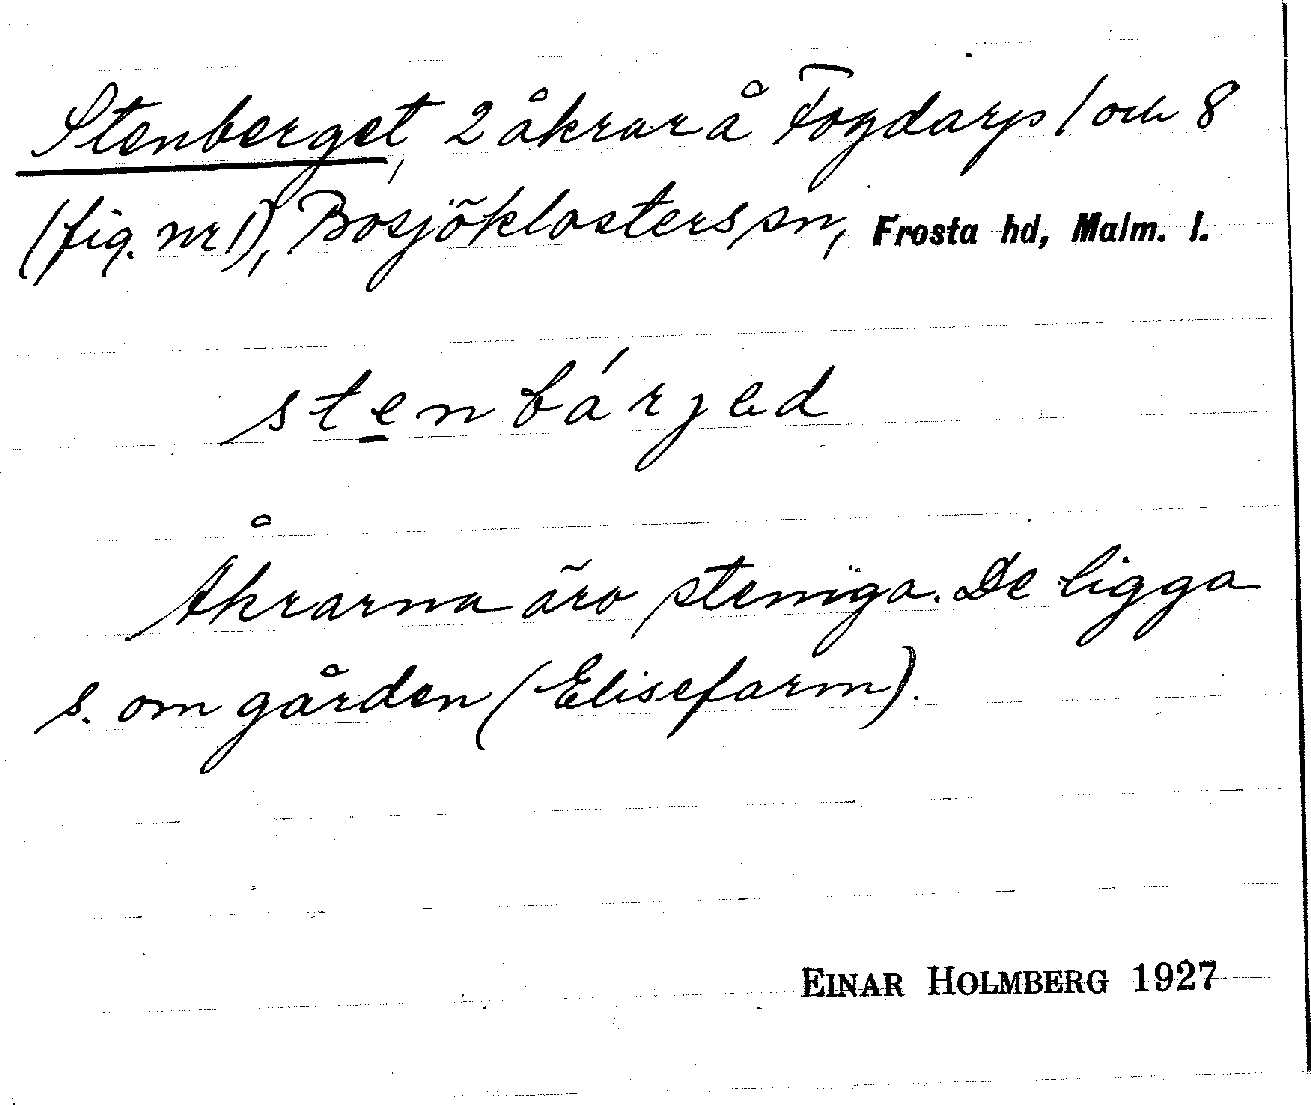 Stenberget, 2 åkrar å Fogdarp 1 och 8
(fig. nr 1), Bosjöklosters sn, Frosta hd, Malm. l.
stenbárjed
Åkrarna äro steniga. De ligga
s. om gården (Elisefarm).
EINAR HOLMBERG 1927